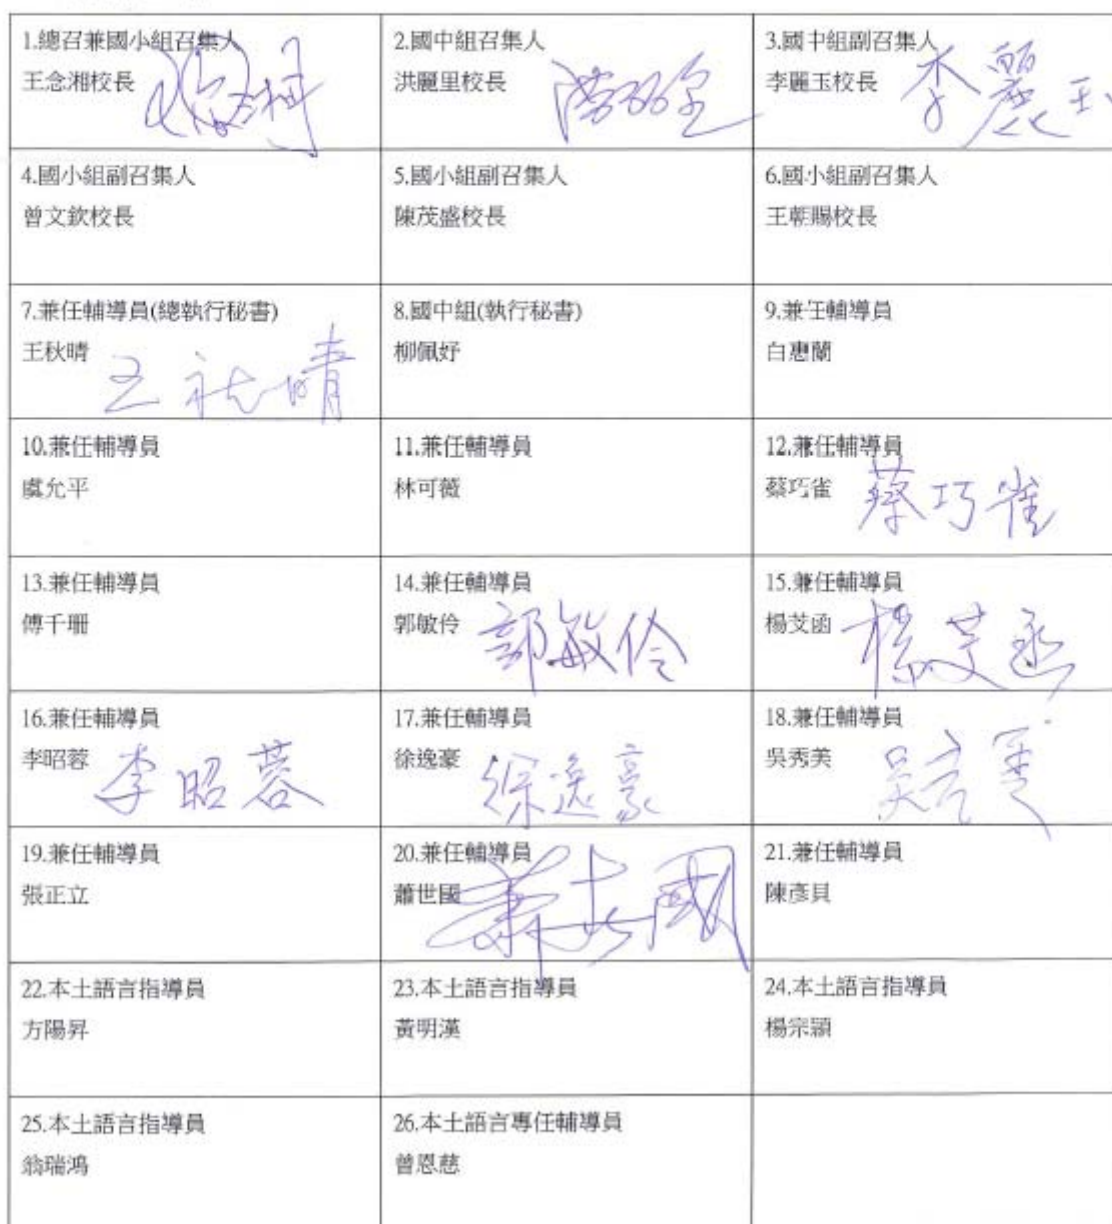 1.總召兼國小組召集人
王念湘校長
2.國中組召集人
洪麗里校長
3.國中組副召集人
李麗玉校長
李麗玉
4.國小組副召集人
曾文欽校長
5.國小組副召集人
陳茂盛校長
6.國小組副召集人
王朝賜校長
7.兼任輔導員(總執行秘書)
王秋晴
王秋晴
8.國中組(執行秘書)
柳佩妤
9.兼任輔導員
白惠蘭
10.兼任輔導員
虞允平
11.兼任輔導員
林可薇
12.兼任輔導員
蔡巧雀
蔡巧雀
13.兼任輔導員
傅千珊
14.兼任輔導員
郭敏伶
郭敏伶
15.兼任輔導員
楊艾函
楊艾函
16.兼任輔導員
李昭蓉
李昭蓉
17.兼任輔導員
徐逸豪
徐逸豪
18.兼任輔導員
吳秀美
吳秀美
19.兼任輔導員
張正立
20.兼任輔導員
蕭世國
蕭世國
21.兼任輔導員
陳彥貝
22.本土語言指導員
方陽昇
23.本土語言指導員
黃明漢
24.本土語言指導員
楊宗穎
25.本土語言指導員
翁瑞鴻
26.本土語言專任輔導員
曾恩慈